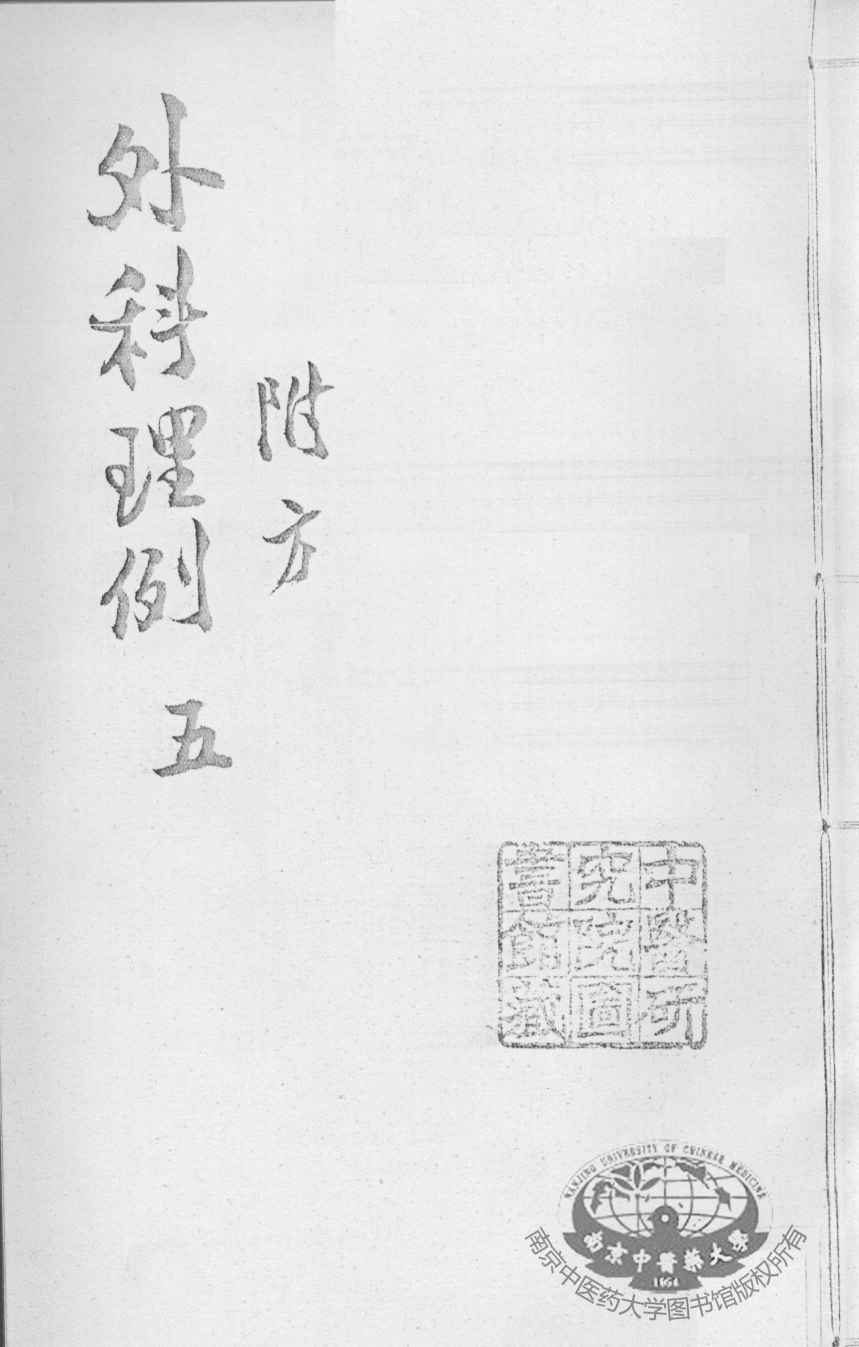 附方
外科理例 五
中醫研
究院圖
書館藏
NANJING UNIVERSITY OF CHINESE MEDICINE
南京中醫藥大學
1954
南京中医药大学图书馆版权所有